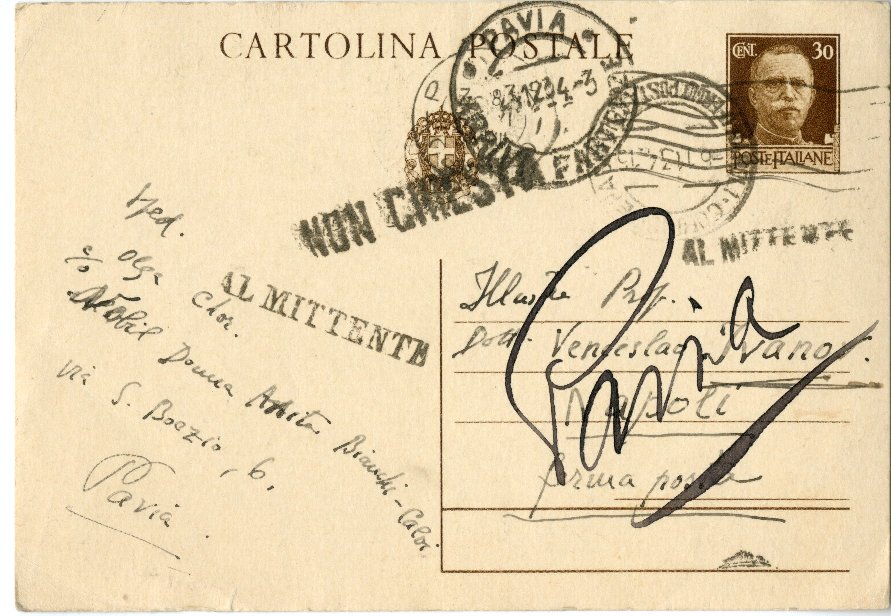 CARTOLINA POSTALE
CENT. 30
POSTE ITALIANE
PAVIA
NON CHIESTO
AL MITTENTE
AL MITTENTE
Sped.
Olga Chor.
c/o Nobil Donna Anita Bianchi-Calvi
via S. Boezio, 6.
Pavia
Illustre Prof.
Dott. Venceslao Ivanov.
Napoli
ferma posta
Pavia